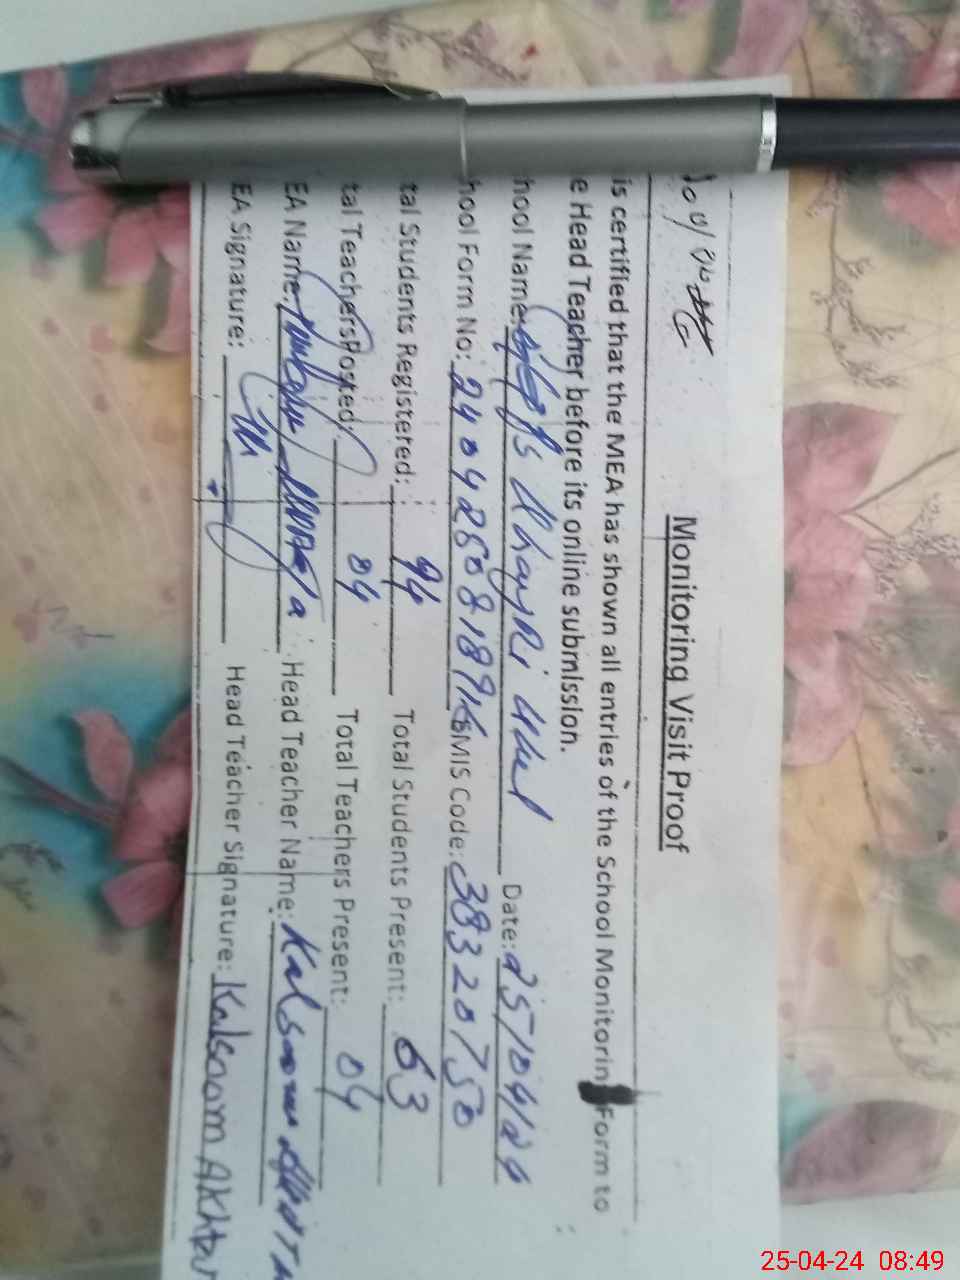 Monitoring Visit Proof
is certified that the MEA has shown all entries of the School Monitorin Form to
e Head Teacher before its online submission.
hool Name: Date: 25/04/24
hool Form No: EMIS Code: 38320750
tal Students Registered: 94 Total Students Present: 63
tal Teachers Posted: 04 Total Teachers Present: 04
EA Name: Head Teacher Name: Kalsoom
EA Signature: Head Teacher Signature: Kalsoom Akhtar
25-04-24 08:49